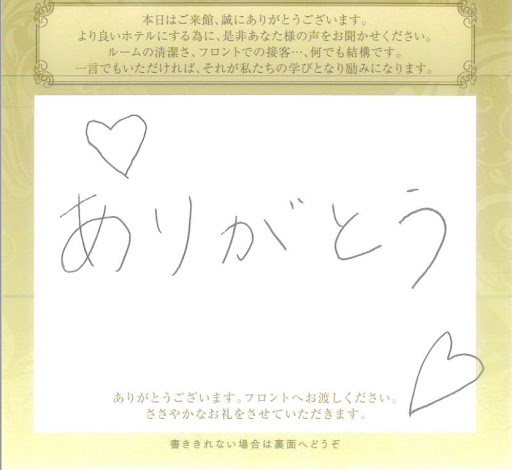 本日はご来館、誠にありがとうございます。
より良いホテルにする為に、是非あなた様の声をお聞かせください。
ルームの清潔さ、フロントでの接客…、何でも結構です。
一言でもいただければ、それが私たちの学びとなり励みになります。
ありがとう
ありがとうございます。フロントへお渡しください。
ささやかなお礼をさせていただきます。
書ききれない場合は裏面へどうぞ